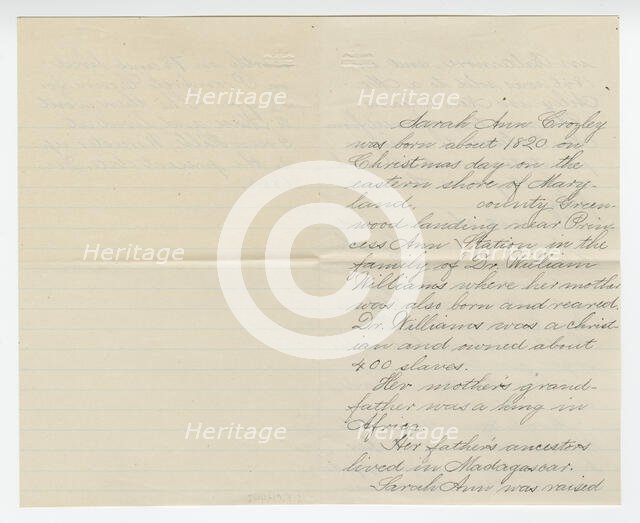 Sarah Ann Crozley
was born about 1820 on
Christmas day on the
eastern shore of Mary-
land, county Green-
wood landing near Prin-
cess Ann Station in the
family of Dr. William
Williams where her mother
was also born and reared.
Dr. Williams was a christ-
ian and owned about
400 slaves.
Her mother's grand-
father was a king in
Africa.
Her father's ancestors
lived in Madagascar.
Sarah Ann was raised
Heritage
Heritage
Heritage
Heritage
Heritage
Heritage
Heritage
Heritage
C